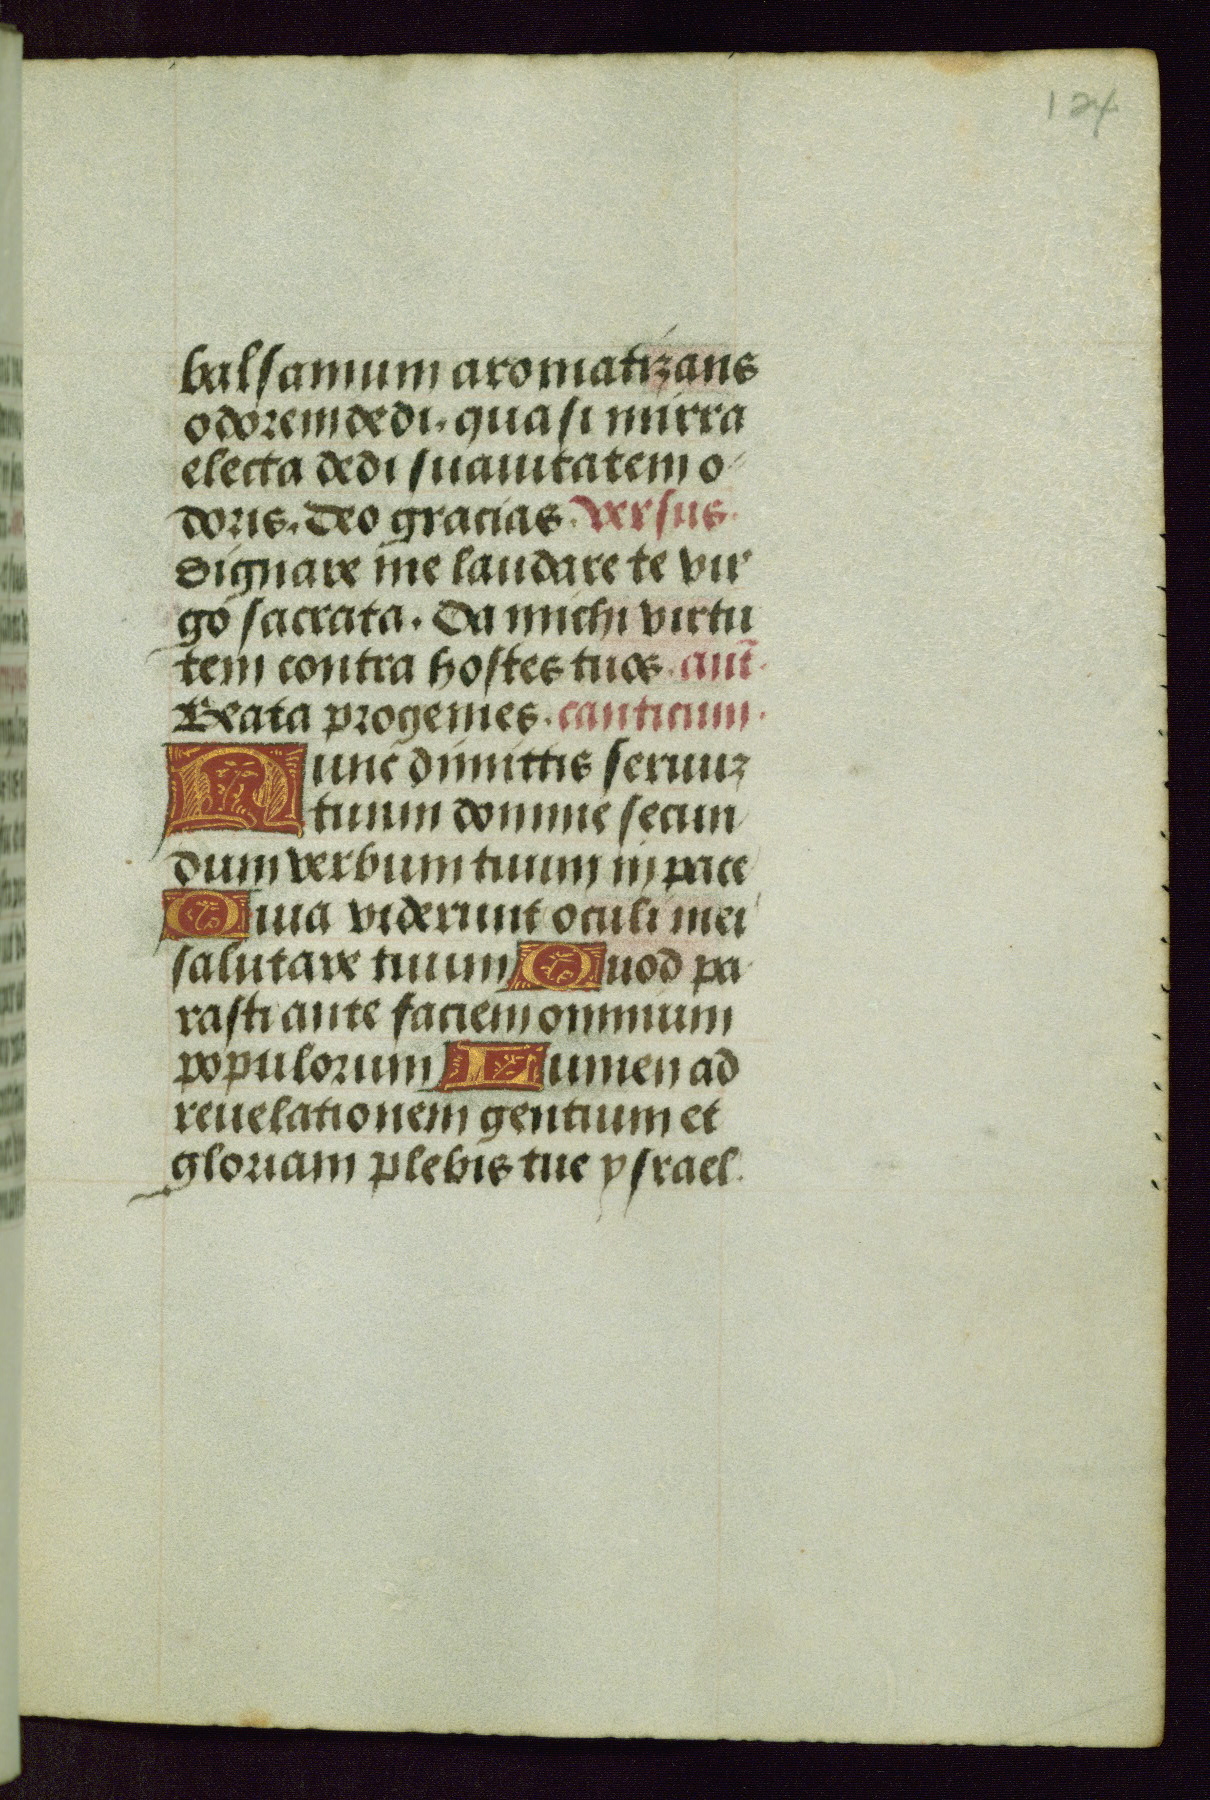 124
balsamum aromatizans
odorem dedi. quasi mirra
electa dedi suauitatem o
doris. Deo gracias. versus.
Dignare me laudare te vir
go sacrata. Da michi virtu
tem contra hostes tuos. ant̄.
Beata progenies. canticum.
Nunc dimittis seruuꝫ
tuum domine secun
dum verbum tuum in pace
Quia viderunt oculi mei
salutare tuum Quod pa
rasti ante faciem omnium
populorum Lumen ad
reuelationem gentium et
gloriam plebis tue ysrael.